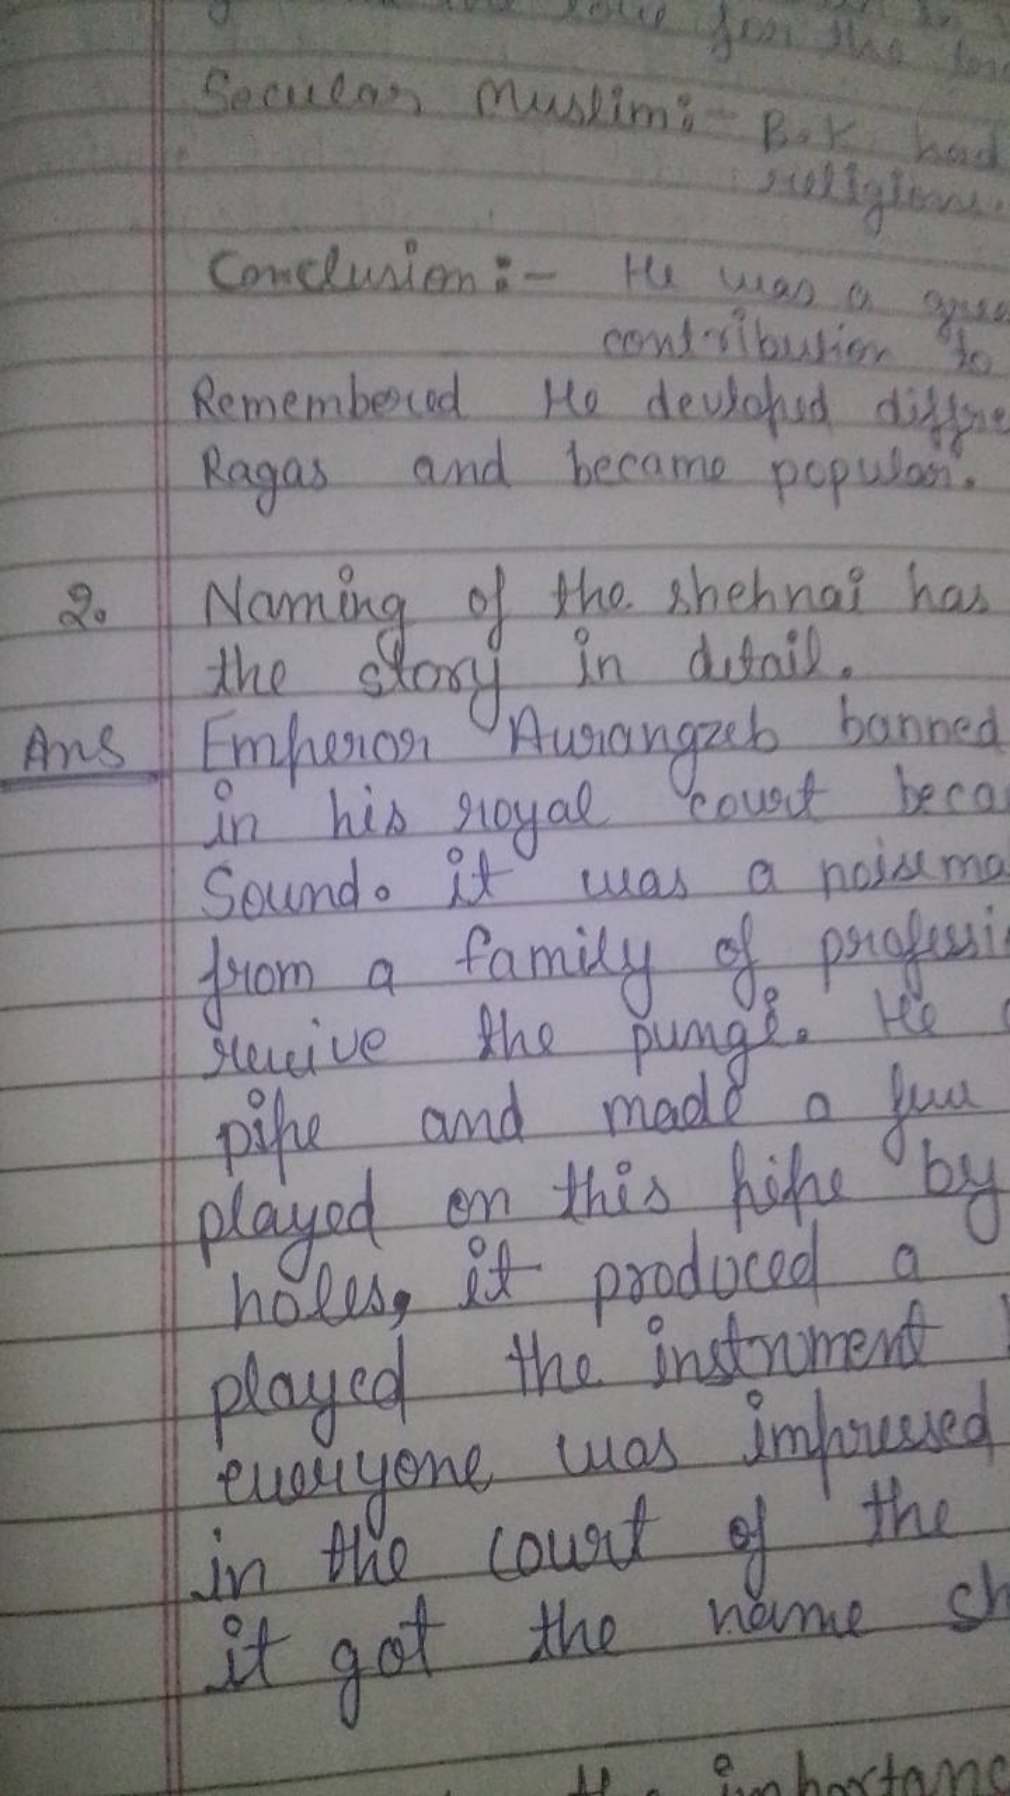 for the
Secular Muslim:- B.K. had
religion.
Conclusion:- He was a grea
contribution to
Remembered He devloped diffre
Ragas and became popular.
2. Naming of the shehnai has
the story in detail.
Ans Emperor Aurangzeb banned
in his royal court beca
Sound. it was a noisema
from a family of professi
revive the pungi. He
pipe and made a few
played on this pipe by
holes, it produced a
played the instrument
everyone was impressed
in the court of the
it got the name sh
the importanc